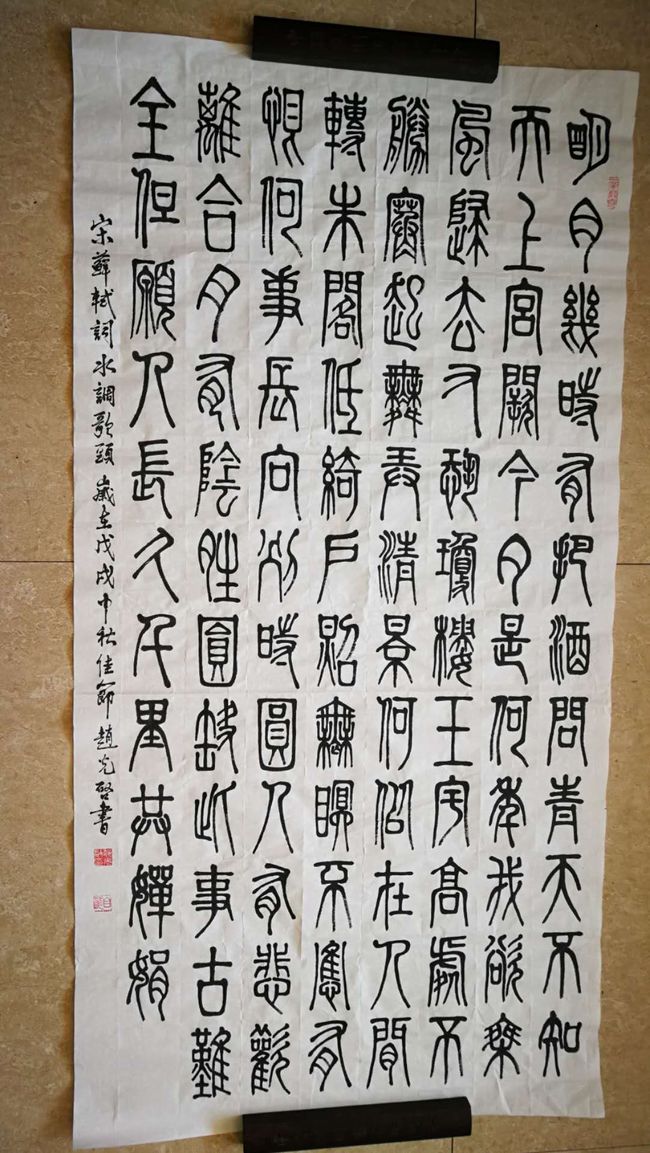 明月幾時有把酒問青天不知
天上宮闕今夕是何年我欲乘
風歸去又恐瓊樓玉宇高處不
勝寒起舞弄清景何似在人間
轉朱閣低綺戶照無眠不應有
恨何事長向別時圓人有悲歡
離合月有陰晴圓缺此事古難
全但願人長久千里共嬋娟
宋蘇軾詞水調歌頭 歲在戊戌中秋佳節 趙光啓書